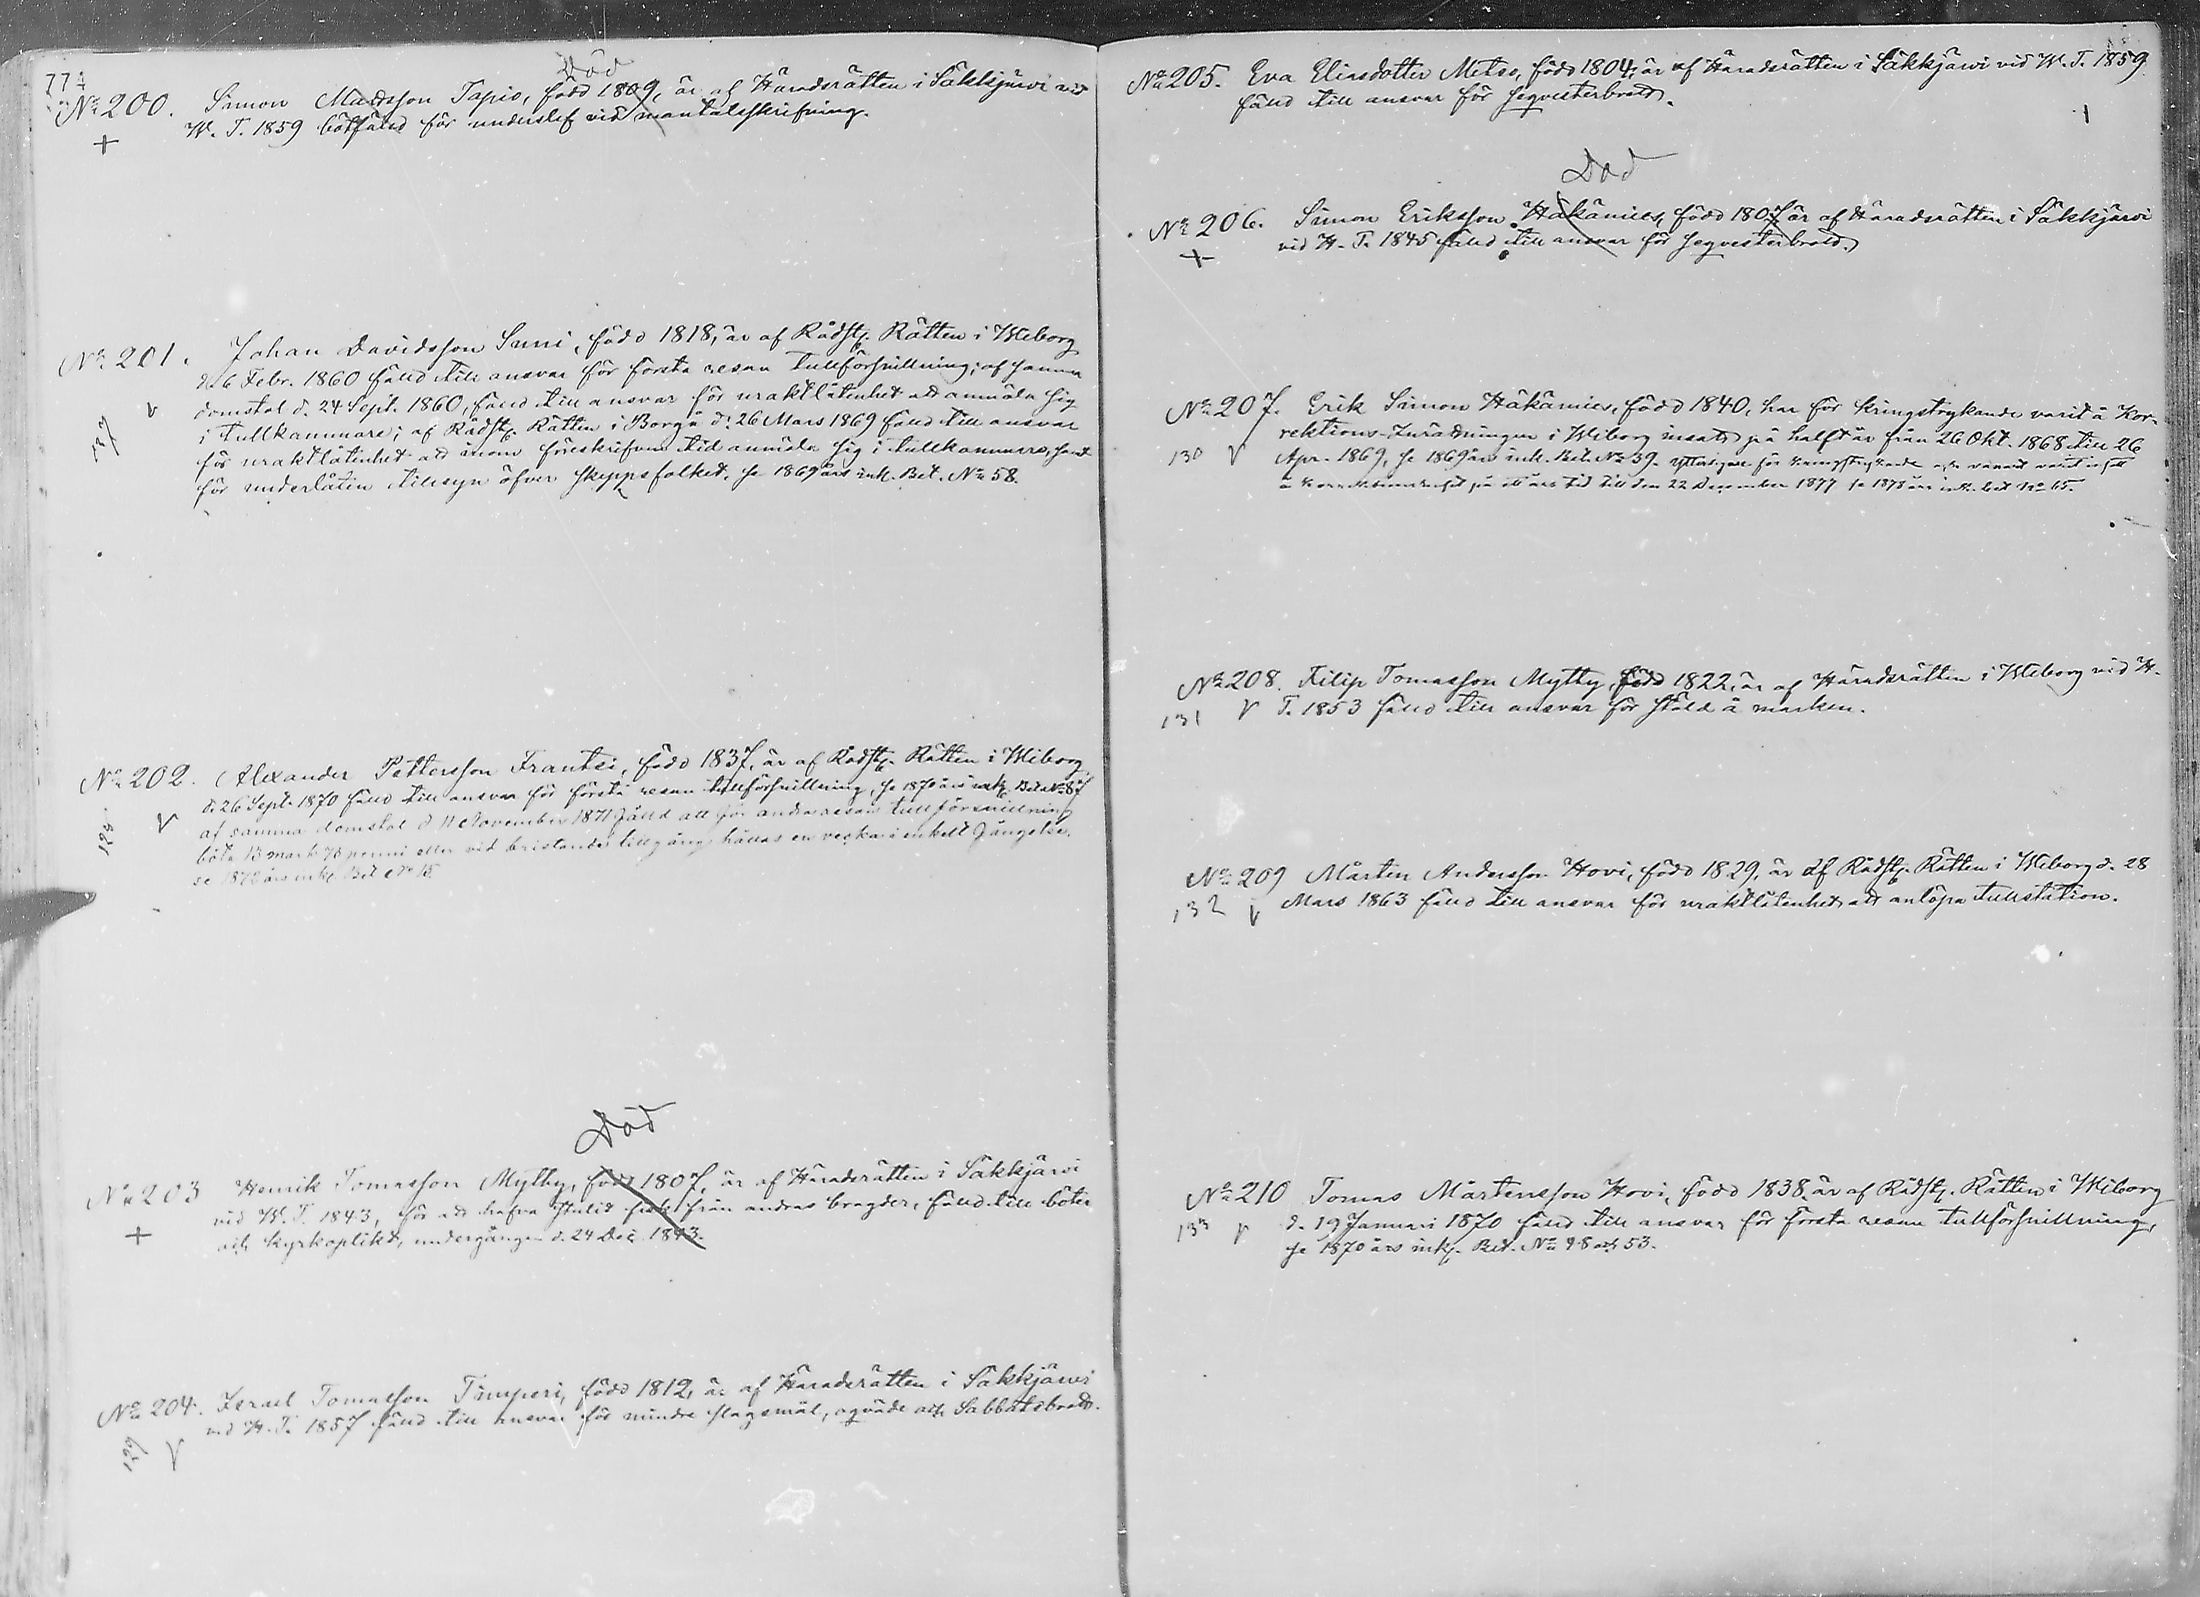 774
Död
No 200. Simon Mattsson Tapio, född 1809, är af Häradsrätten i Säkkjärvi vid
+ W. T. 1859 botfälld för underslef vid mantalsskrifning.
No 201. Johan Davidsson Suni, född 1818, är af Rådst. Rätten i Wiborg
d. 6 Febr. 1860 fälld till ansvar för första resan tullförsnillning; af samma
domstol d. 24 Sept. 1860, fälld till ansvar för uraktlåtenhet att anmäla sig
V i tullkammare; af Rådst. Rätten i Borgå d. 26 Mars 1869 fälld till ansvar
för uraktlåtenhet att inom föreskrifven tid anmäla sig i tullkammare, samt
för underlåten tillsyn öfver skeppsfolket, se 1869 års ink. Bet. No 58.
No 202. Alexander Pettersson Frantsi, född 1837, är af Rådst. Rätten i Wiborg
d. 26 Sept. 1870 fälld till ansvar för första resan tullförsnillning, se 1870 års ink. Bet. No 87
V af samma domstol d 11 November 1871 fälld att för andra resan tullförsnillning
böta 13 mark 78 penni eller vid bristande tillgång hållas en vecka i enkelt fängelse.
se 1872 års ink. Bet No 15
Död
No 203 Henrik Tomasson Mytty, född 1807, är af Häradsrätten i Säkkjärvi
vid W. T. 1843, för att hafva stulit fisk från andras bragder, fälld till böter
+ och kyrkoplikt, undergången d. 24 Dec. 1843.
No 204. Israel Tomasson Timperi, född 1812, är af Häradsrätten i Säkkjärvi
V vid H. T. 1857 fälld till ansvar för mindre slagsmål, oqväde och Sabbatsbrott.
No 205. Eva Eliasdotter Metso, född 1804, är af Häradsrätten i Säkkjärvi vid W. T. 1859
fälld till ansvar för seqvesterbrott.
Död
No 206. Simon Eriksson Häkämies, född 1807, är af Häradsrätten i Säkkjärvi
+ vid H. T. 1845 fälld till ansvar för seqvesterbrott.
No 207. Erik Simon Häkämies, född 1840, har för kringstrykande varit å Kor-
rektions-Inrättningen i Wiborg insatt på halft år från 26 Okt. 1868 till 26
130 V Apr. 1869, se 1869 års ink. Bet. No 39. ytterligare för kringstrykande varit insatt
på ett års tid till den 22 December 1877 se 1878 års ink. bet No 65.
No 208. Filip Tomasson Mytty, född 1822, är af Häradsrätten i Wiborg vid H.
131 V T. 1853 fälld till ansvar för stöld å marken.
No 209 Mårten Andersson Hovi, född 1829, är af Rådst. Rätten i Wiborg d. 28
132 V Mars 1863 fälld till ansvar för uraktlåtenhet att anlöpa tullstation.
No 210 Tomas Mårtensson Hovi, född 1838, är af Rådst. Rätten i Wiborg
133 V d. 19 Januari 1870 fälld till ansvar för första resan tullförsnillning,
se 1870 års ink. Bet. No 98 och 53.